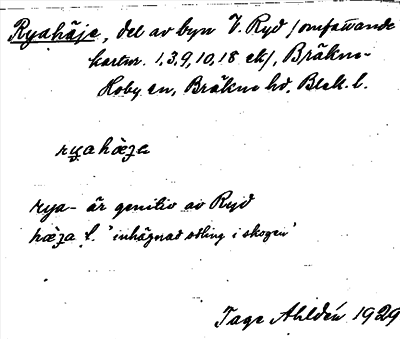 Ryahäje, del av byn V. Ryd /omfattande
hartm. 1,3,9,10,18 etc/, Bräkne-
Hoby sn, Bräkne hd. Blek. l.
rya hæja
rya- är genitiv av Ryd
hæja f. 'inhägnad odling i skogen'
Tage Ahldén 1929